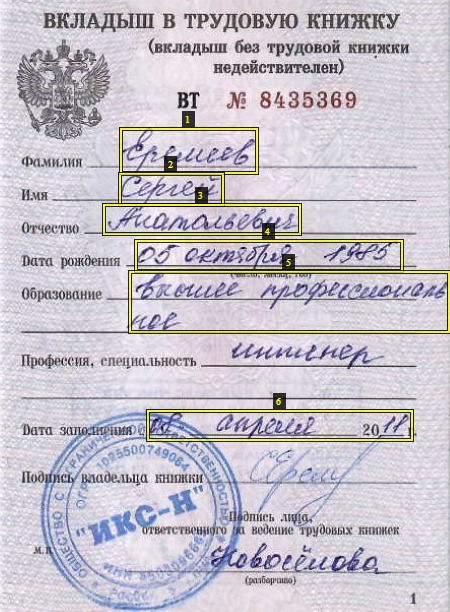 ВКЛАДЫШ В ТРУДОВУЮ КНИЖКУ
(вкладыш без трудовой книжки
недействителен)
ВТ № 8435369
1
Фамилия Еремеев
2
Имя Сергей
3
Отчество Анатольевич
4
Дата рождения 05 октября 1985
5
(число, месяц, год)
Образование высшее профессиональ
ное
Профессия, специальность инженер
6
Дата заполнения 08 апреля 2011 г.
Подпись владельца книжки
Подпись лица,
ответственного за ведение трудовых книжек
М.П. Новосёлова
(разборчиво)
"ИКС-Н"
1